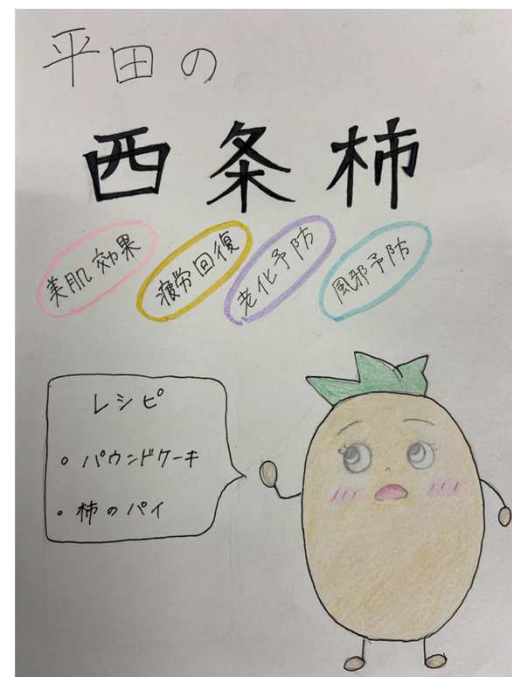 平田の
西条柿
美肌効果
疲労回復
老化予防
風邪予防
レシピ
・パウンドケーキ
・柿のパイ